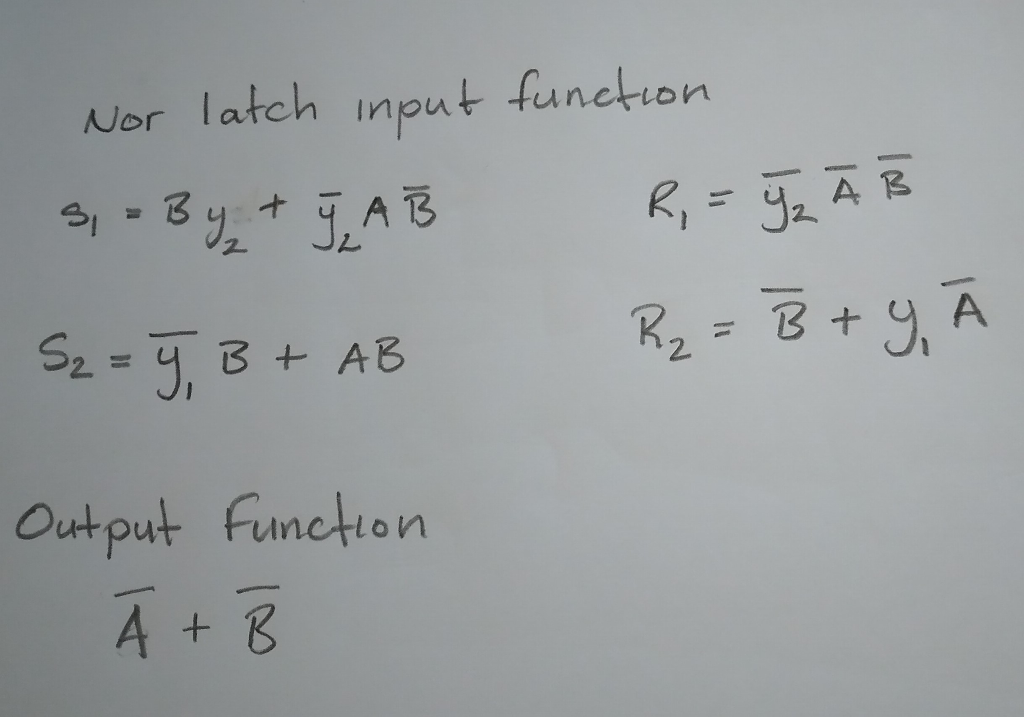 Nor latch input function
S₁ = B y₂ + y̅₂ A B̅    R₁ = y̅₂ A̅ B̅
S₂ = y̅₁ B + AB    R₂ = B̅ + y₁ A̅
Output Function
A̅ + B̅